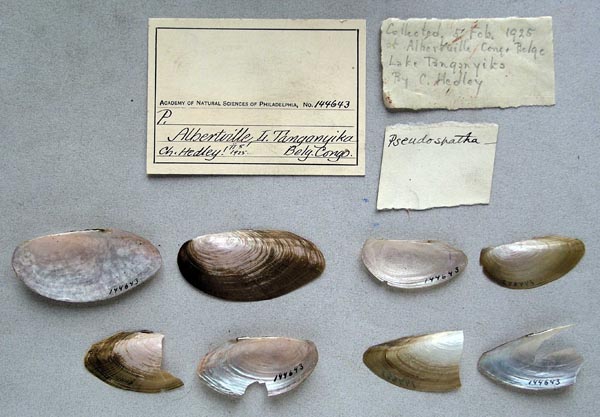 ACADEMY OF NATURAL SCIENCES OF PHILADELPHIA, No. 144643
P.
Albertville, L. Tanganyika
Ch. Hedley. Belg. Congo.
Collected, Feb. 1925
at Albertville Congo Belge
Lake Tanganyika
By C. Hedley
Pseudospatha
144643
144643
144643
144643
144643